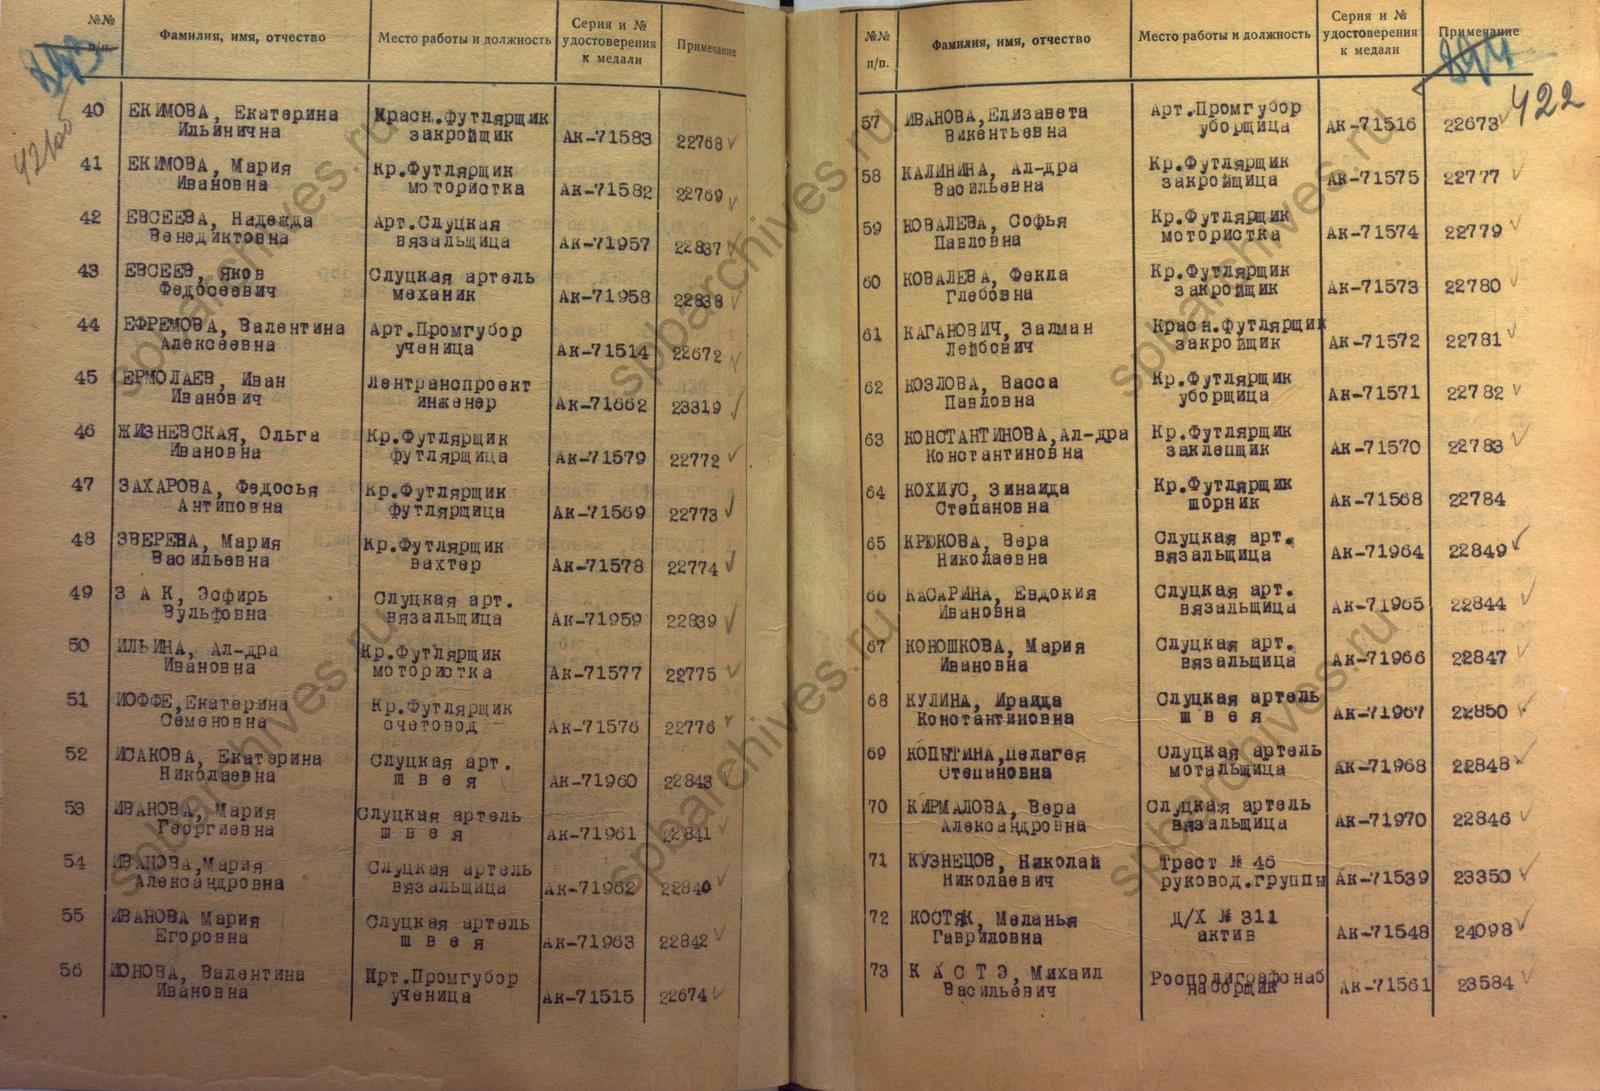 №№ п/п. Фамилия, имя, отчество Место работы и должность Серия и № удостоверения к медали Примечание
40 ЕКИМОВА, Екатерина Красн.футлярщик
Ильинична закройщик Ак-71583 22768
41 ЕКИМОВА, Мария Кр.Футлярщик
Ивановна мотористка Ак-71582 22769
42 ЕВСЕЕВА, Надежда Арт.Слуцкая
Венедиктовна вязальщица Ак-71957 22837
43 ЕВСЕЕВ, Яков Слуцкая артель
Федосеевич механик Ак-71958 22838
44 ЕФРЕМОВА, Валентина Арт.Промгубор
Алексеевна ученица Ак-71514 22672
45 ЕРМОЛАЕВ, Иван Лентранспроект
Иванович инженер Ак-71662 23319
46 ЖИЗНЕВСКАЯ, Ольга Кр.Футлярщик
Ивановна футлярщица Ак-71579 22772
47 ЗАХАРОВА, Федосья Кр.Футлярщик
Антиповна футлярщица Ак-71569 22773
48 ЗВЕРЕВА, Мария Кр.Футлярщик
Васильевна вахтер Ак-71578 22774
49 З А К, Эсфирь Слуцкая арт.
Вульфовна вязальщица Ак-71959 22839
50 ИЛЬИНА, Ал-дра Кр.Футлярщик
Ивановна мотористка Ак-71577 22775
51 ИОФФЕ,Екатерина Кр.Футлярщик
Семеновна счетовод Ак-71576 22776
52 ИСАКОВА, Екатерина Слуцкая арт.
Николаевна ш в е я Ак-71960 22843
53 ИВАНОВА, Мария Слуцкая артель
Георгиевна ш в е я Ак-71961 22841
54 ИВАНОВА,Мария Слуцкая артель
Александровна вязальщица Ак-71962 22840
55 ИВАНОВА Мария Слуцкая артель
Егоровна ш в е я Ак-71963 22842
56 ИОНОВА, Валентина Арт.Промгубор
Ивановна ученица Ак-71515 22674
№№ п/п. Фамилия, имя, отчество Место работы и должность Серия и № удостоверения к медали Примечание
422
57 ИВАНОВА,Елизавета Арт.Промгубор
Викентьевна уборщица Ак-71516 22673
58 КАЛИНИНА, Ал-дра Кр.Футлярщик
Васильевна закройщица Ак-71575 22777
59 КОВАЛЕВА, Софья Кр.Футлярщик
Павловна мотористка Ак-71574 22779
60 КОВАЛЕВА, Фекла Кр.Футлярщик
Глебовна закройщик Ак-71573 22780
61 КАГАНОВИЧ, Залман Красн.футлярщик
Лейбович закройщик Ак-71572 22781
62 КОЗЛОВА, Васса Кр.Футлярщик
Павловна уборщица Ак-71571 22782
63 КОНСТАНТИНОВА,Ал-дра Кр.Футлярщик
Константиновна заклепщик Ак-71570 22783
64 КОХИУС, Зинаида Кр.Футлярщик
Степановна шорник Ак-71568 22784
65 КРЮКОВА, Вера Слуцкая арт.
Николаевна вязальщица Ак-71964 22849
66 КАСАРИНА, Евдокия Слуцкая арт.
Ивановна вязальщица Ак-71965 22844
67 КОНОШКОВА, Мария Слуцкая арт.
Ивановна вязальщица Ак-71966 22847
68 КУЛИНА, Ираида Слуцкая артель
Константиновна ш в е я Ак-71967 22850
69 КОПЫТИНА,Пелагея Слуцкая артель
Степановна мотальщица Ак-71968 22848
70 КИРМАЛОВА, Вера Слуцкая артель
Александровна вязальщица Ак-71970 22846
71 КУЗНЕЦОВ, Николай Трест № 46
Николаевич руковод.группы Ак-71539 23350
72 КОСТЯК, Меланья Д/Х № 311
Гавриловна актив Ак-71548 24098
73 К А С Т Э, Михаил Росполиграфонаб
Васильевич наборщик Ак-71561 23584
spbarchives.ru
spbarchives.ru
spbarchives.ru
spbarchives.ru
spbarchives.ru
spbarchives.ru